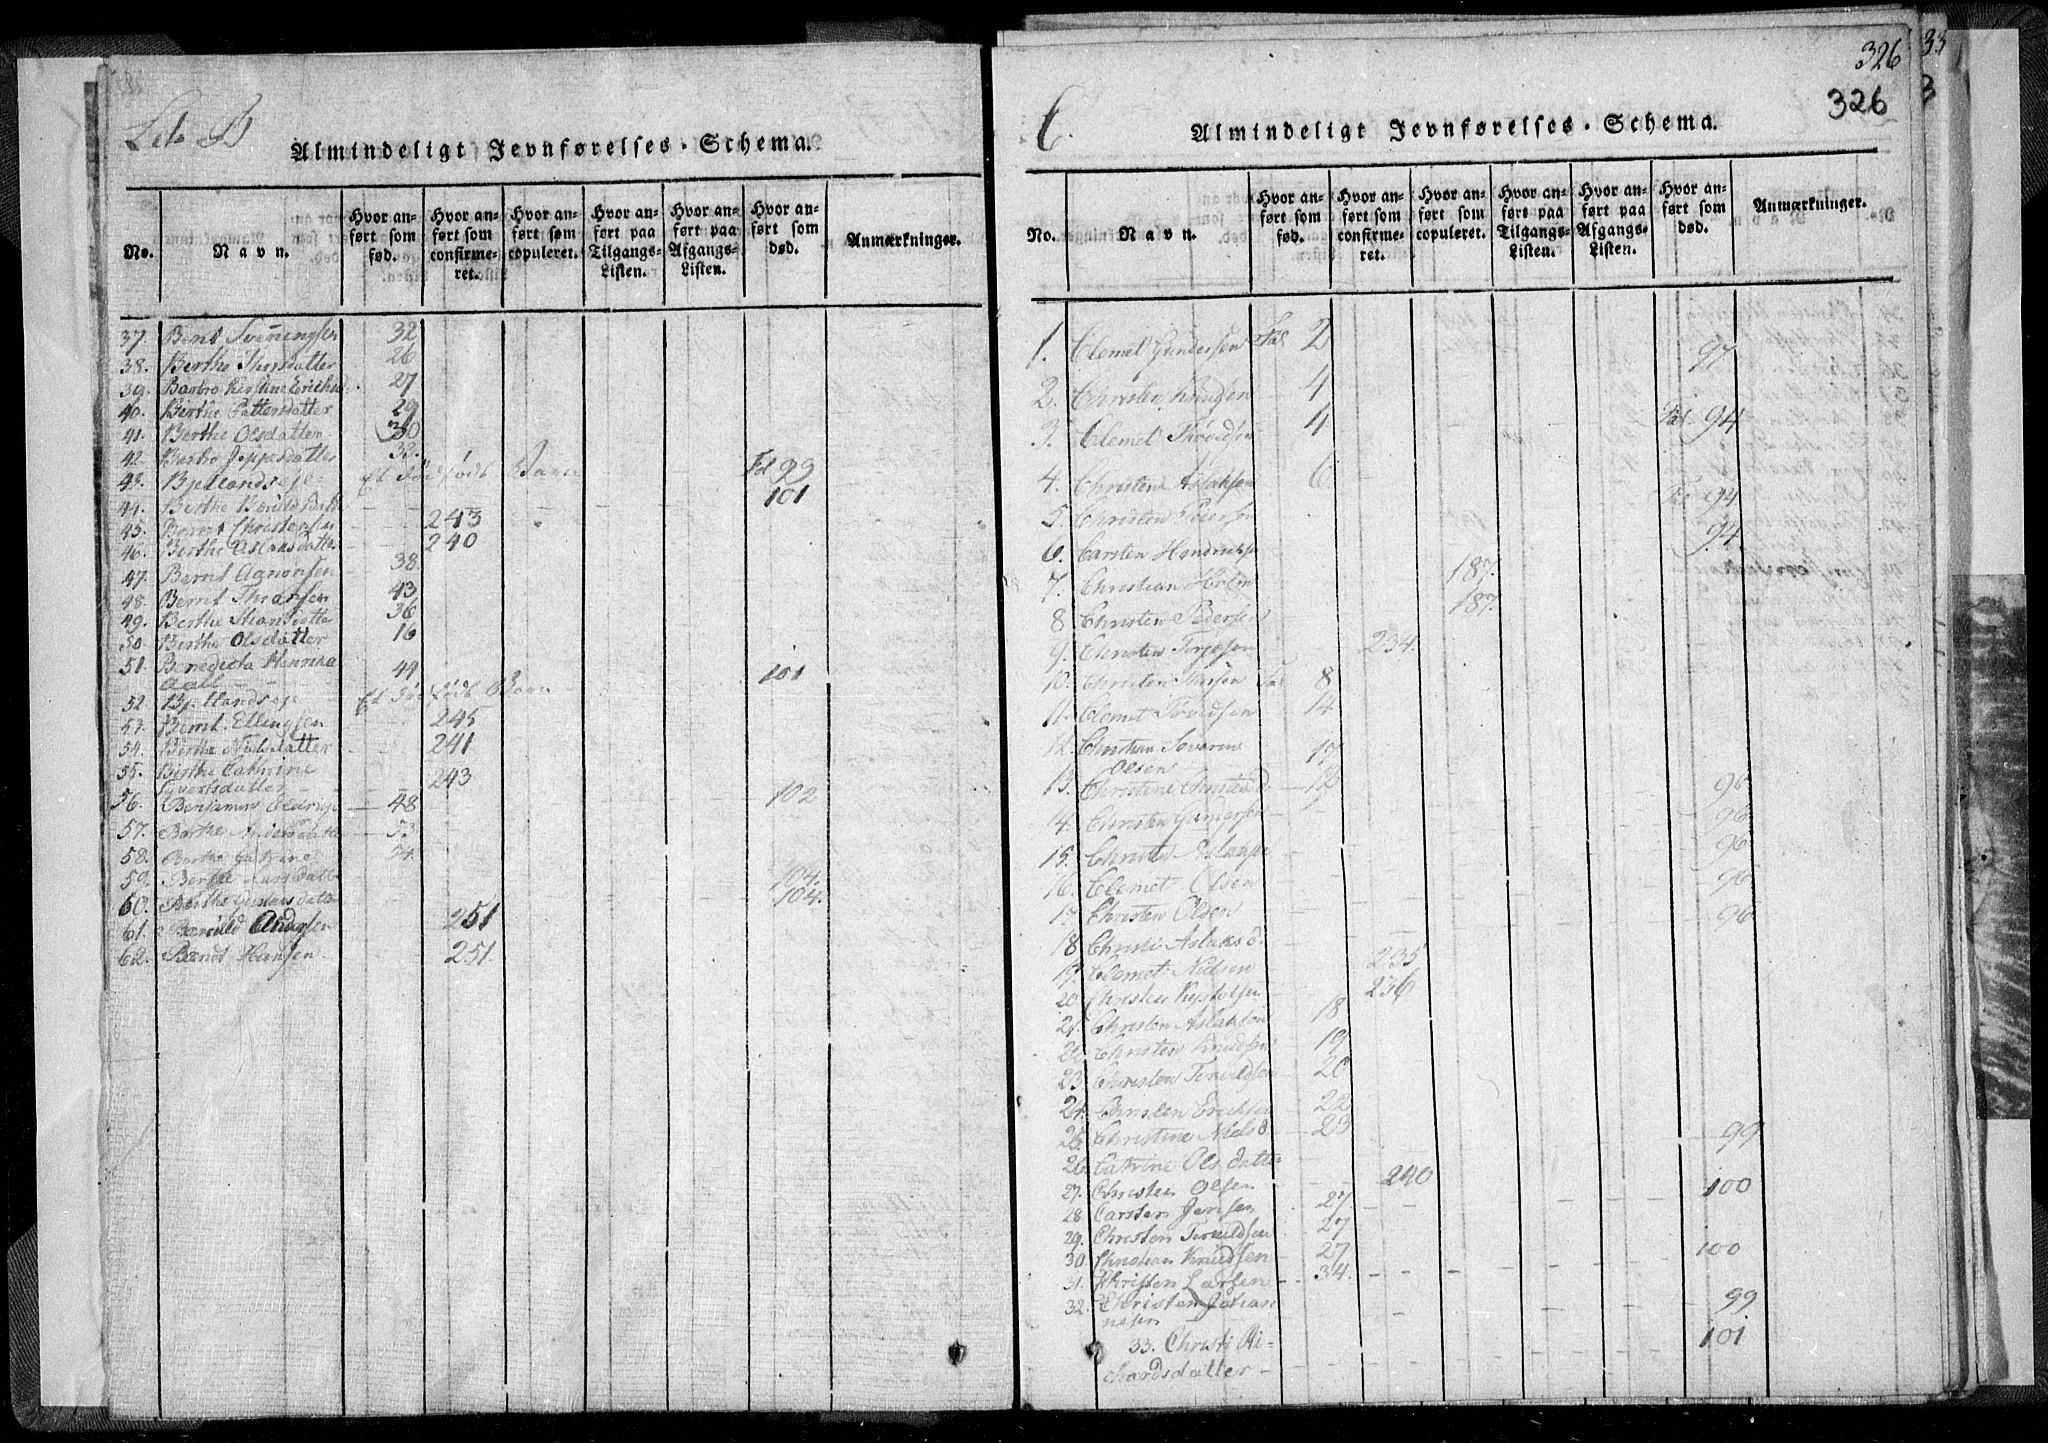 Lit. B
Almindeligt Jevnførelses-Schema.
No.
Navn.
Hvor anført som fød.
Hvor anført som confirmeret.
Hvor anført som copuleret.
Hvor anført paa Tilgangs-Listen.
Hvor anført paa Afgangs-Listen.
Hvor anført som død.
Anmærkninger.
37. Bent Svenningsen 32
38. Berthe Thorsdatter 26
39. Barbro Kirstine Erichsd. 27
40. Berthe Pettersdatter 29
41. Berthe Olsdatter 30
42. Barbro Jeppesdatter 33.
43. Bjellandseje Et dødfødt Barn Fol 99
44. Berthe 101
45. Bernt Christensen 243
46. Berthe Aslaksdatter 240
47. Bernt Aanonsen 38
48. Bernt 43
49. Berthe 36
50. Berthe Olsdatter 16
51. Benedicta Henrikka
Aall 44 101
52 Bjellandseje Et dødfødt Barn
53. Bernt Ellingsen 245
54. Berthe Nielsdatter 241
55. Birthe Cathrine
Syvertsdatter 243
56. Benjamin 48 102
57. Berthe Andersdatter 53
58. Berthe 54.
59. Berthe Larsdatter 104.
60. Berthe Gustavsdatter 104.
61. Beruld Andersen 251
62. Berndt Hansen 251.
326
326
C.
Almindeligt Jevnførelses-Schema.
No.
Navn.
Hvor anført som fød.
Hvor anført som confirmeret.
Hvor anført som copuleret.
Hvor anført paa Tilgangs-Listen.
Hvor anført paa Afgangs-Listen.
Hvor anført som død.
Anmærkninger.
1. Clemet Gundersen Fol 2
97
2. Christen Knudsen 4
3. Clemet 4 Fol 94
4. Christen Aslaksen 6
5. Christen Pedersen Fol 94
6. Carsten Hendriksen 94.
7. Christian Holm 187.
8 Christen Pedersen 187.
9. Christen Terjesen 234.
10. Christen Thorsen Fol 8
11. Clemet 14
12. Christian Severin
Olsen 17
13. Christine Christensd. 12 96
14. Christen Gundersen 96.
15. Christen Aslaksen 96
16. Clemet Olsen 96
17. Christen Olsen 96
18 Christi Aslaksd.
19. Clemet Nielsen 235
20. Christen 236
21. Christen Aslaksen 18
22. Christen Knudsen 19
23. Christen Terkildsen 20
24. Christen Erichsen 22
25. Christine Nielsd. 23 99
26 Catrine Olsdatter
27. Christen Olsen 240 100
28 Carsten Jensen 27
29. Christen Terkildsen 27
30. Christian Knudsen 27 100
31. Christen Larsen 34.
32. Christen Johan
nesen 99
33. Christi Ri-
chardsdatter 101